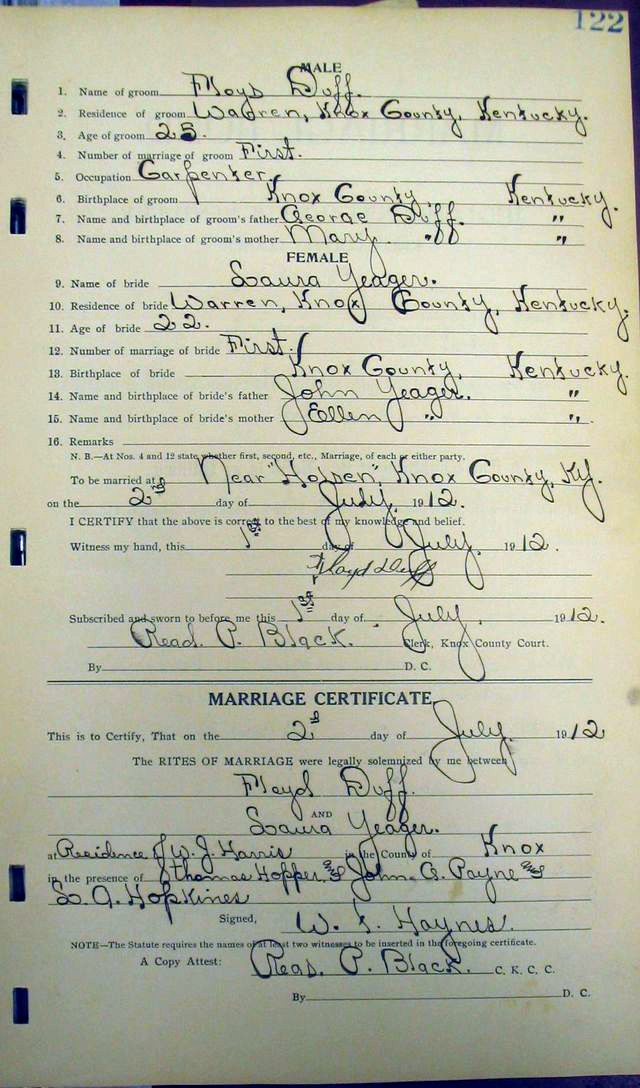 122
MALE
1. Name of groom Floyd Duff.
2. Residence of groom Warren, Knox County, Kentucky.
3. Age of groom 25.
4. Number of marriage of groom First.
5. Occupation Carpenter.
6. Birthplace of groom Knox County, Kentucky.
7. Name and birthplace of groom's father George Duff. "
8. Name and birthplace of groom's mother Mary Duff "
FEMALE
9. Name of bride Laura Yeager.
10. Residence of bride Warren, Knox County, Kentucky.
11. Age of bride 22.
12. Number of marriage of bride First.
13. Birthplace of bride Knox County, Kentucky.
14. Name and birthplace of bride's father John Yeager. "
15. Name and birthplace of bride's mother Ellen " ".
16. Remarks
N. B.—At Nos. 4 and 12 state whether first, second, etc., Marriage, of each or either party.
To be married at Near Knox County, Ky.
on the 2nd day of July, 1912.
I CERTIFY that the above is correct to the best of my knowledge and belief.
Witness my hand, this 1st day of July, 1912.
Floyd Duff
Subscribed and sworn to before me this 1st day of July, 1912.
Read. P. Black. Clerk, Knox County Court.
By D. C.
MARRIAGE CERTIFICATE
This is to Certify, That on the 2d day of July, 1912
The RITES OF MARRIAGE were legally solemnized by me between
Floyd Duff.
AND
Laura Yeager.
at Residence of W. J. Harris in the County of Knox
in the presence of Thomas Hopper and John G. Payne and
L. A. Hopkines
Signed, W. L. Haynes.
NOTE—The Statute requires the names of at least two witnesses to be inserted in the foregoing certificate.
A Copy Attest: Read. P. Black. C. K. C. C.
By D. C.